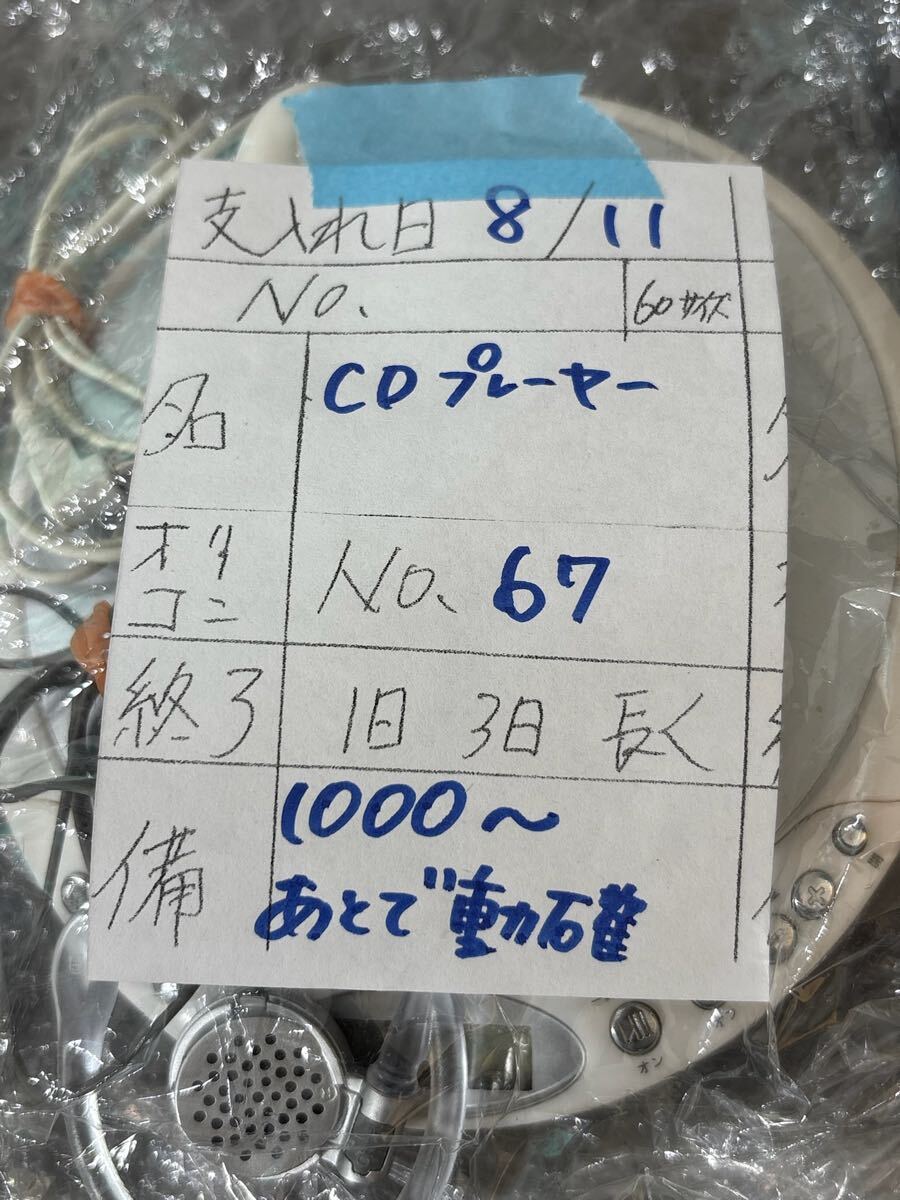 支入れ日 8/11
No. 60サイズ
名 CDプレーヤー
オリコン No. 67
終了 1日 3日 長く
備 1000~
あとで動確
オン